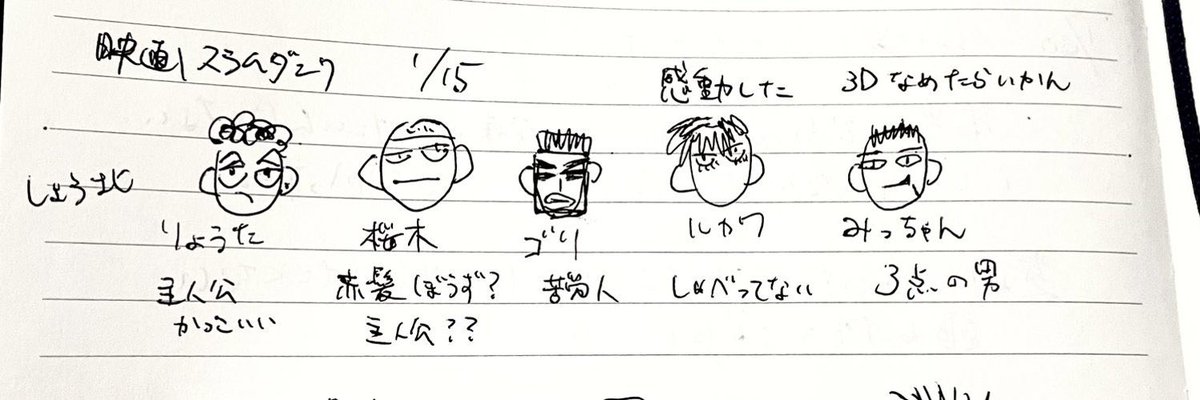 映画 スラムダンク 1/15 感動した 3Dなめたらいかん
しょう北
りょうた 桜木 ゴリ ルカワ みっちゃん
主人公 赤髪ぼうず? 苦労人 しゃべってない 3点の男
かっこいい 主人公??